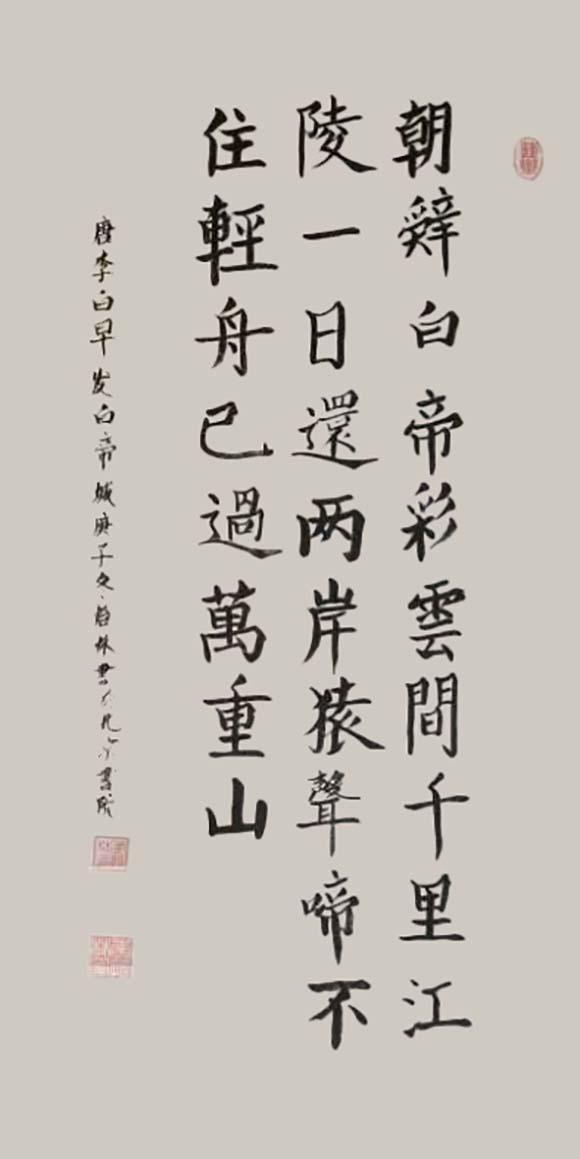 朝辭白帝彩雲間千里江
陵一日還两岸猿聲啼不
住輕舟已過萬重山
唐李白早发白帝城庚子冬